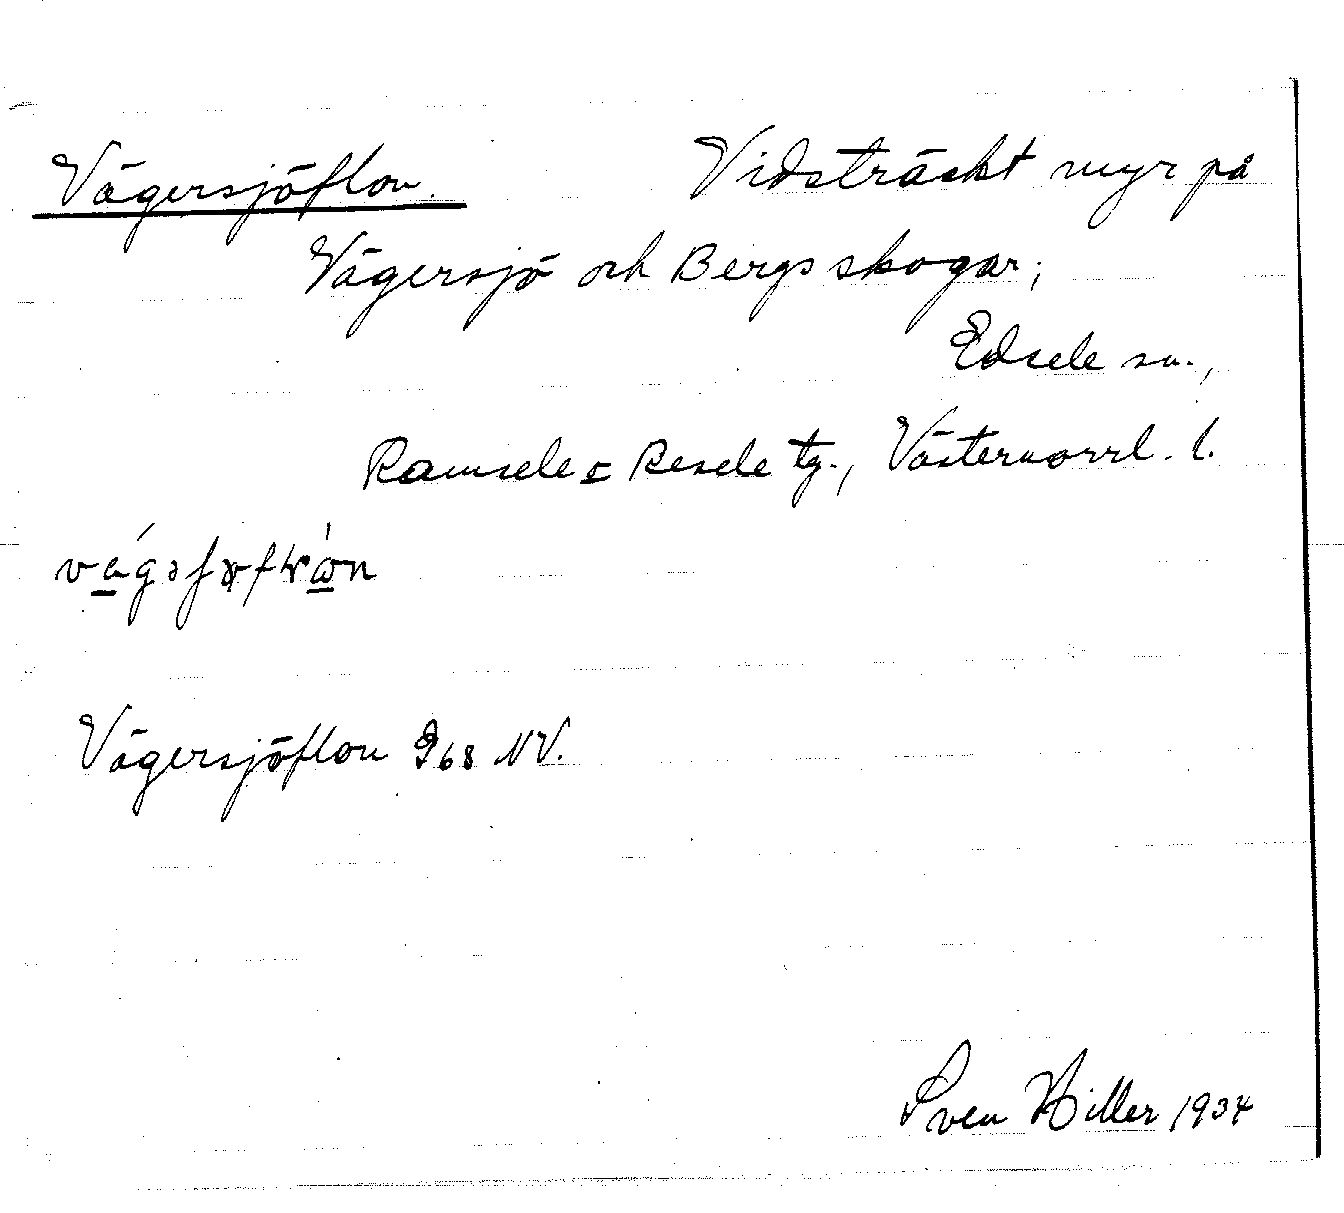 Vägersjöflon. Vidsträckt myr på
Vägersjö och Bergs skogar;
Edsele sn.,
Ramsele o Resele tg., Västernorrl. l.
Vägersjöflon 968 NV.
Sven Hiller 1934